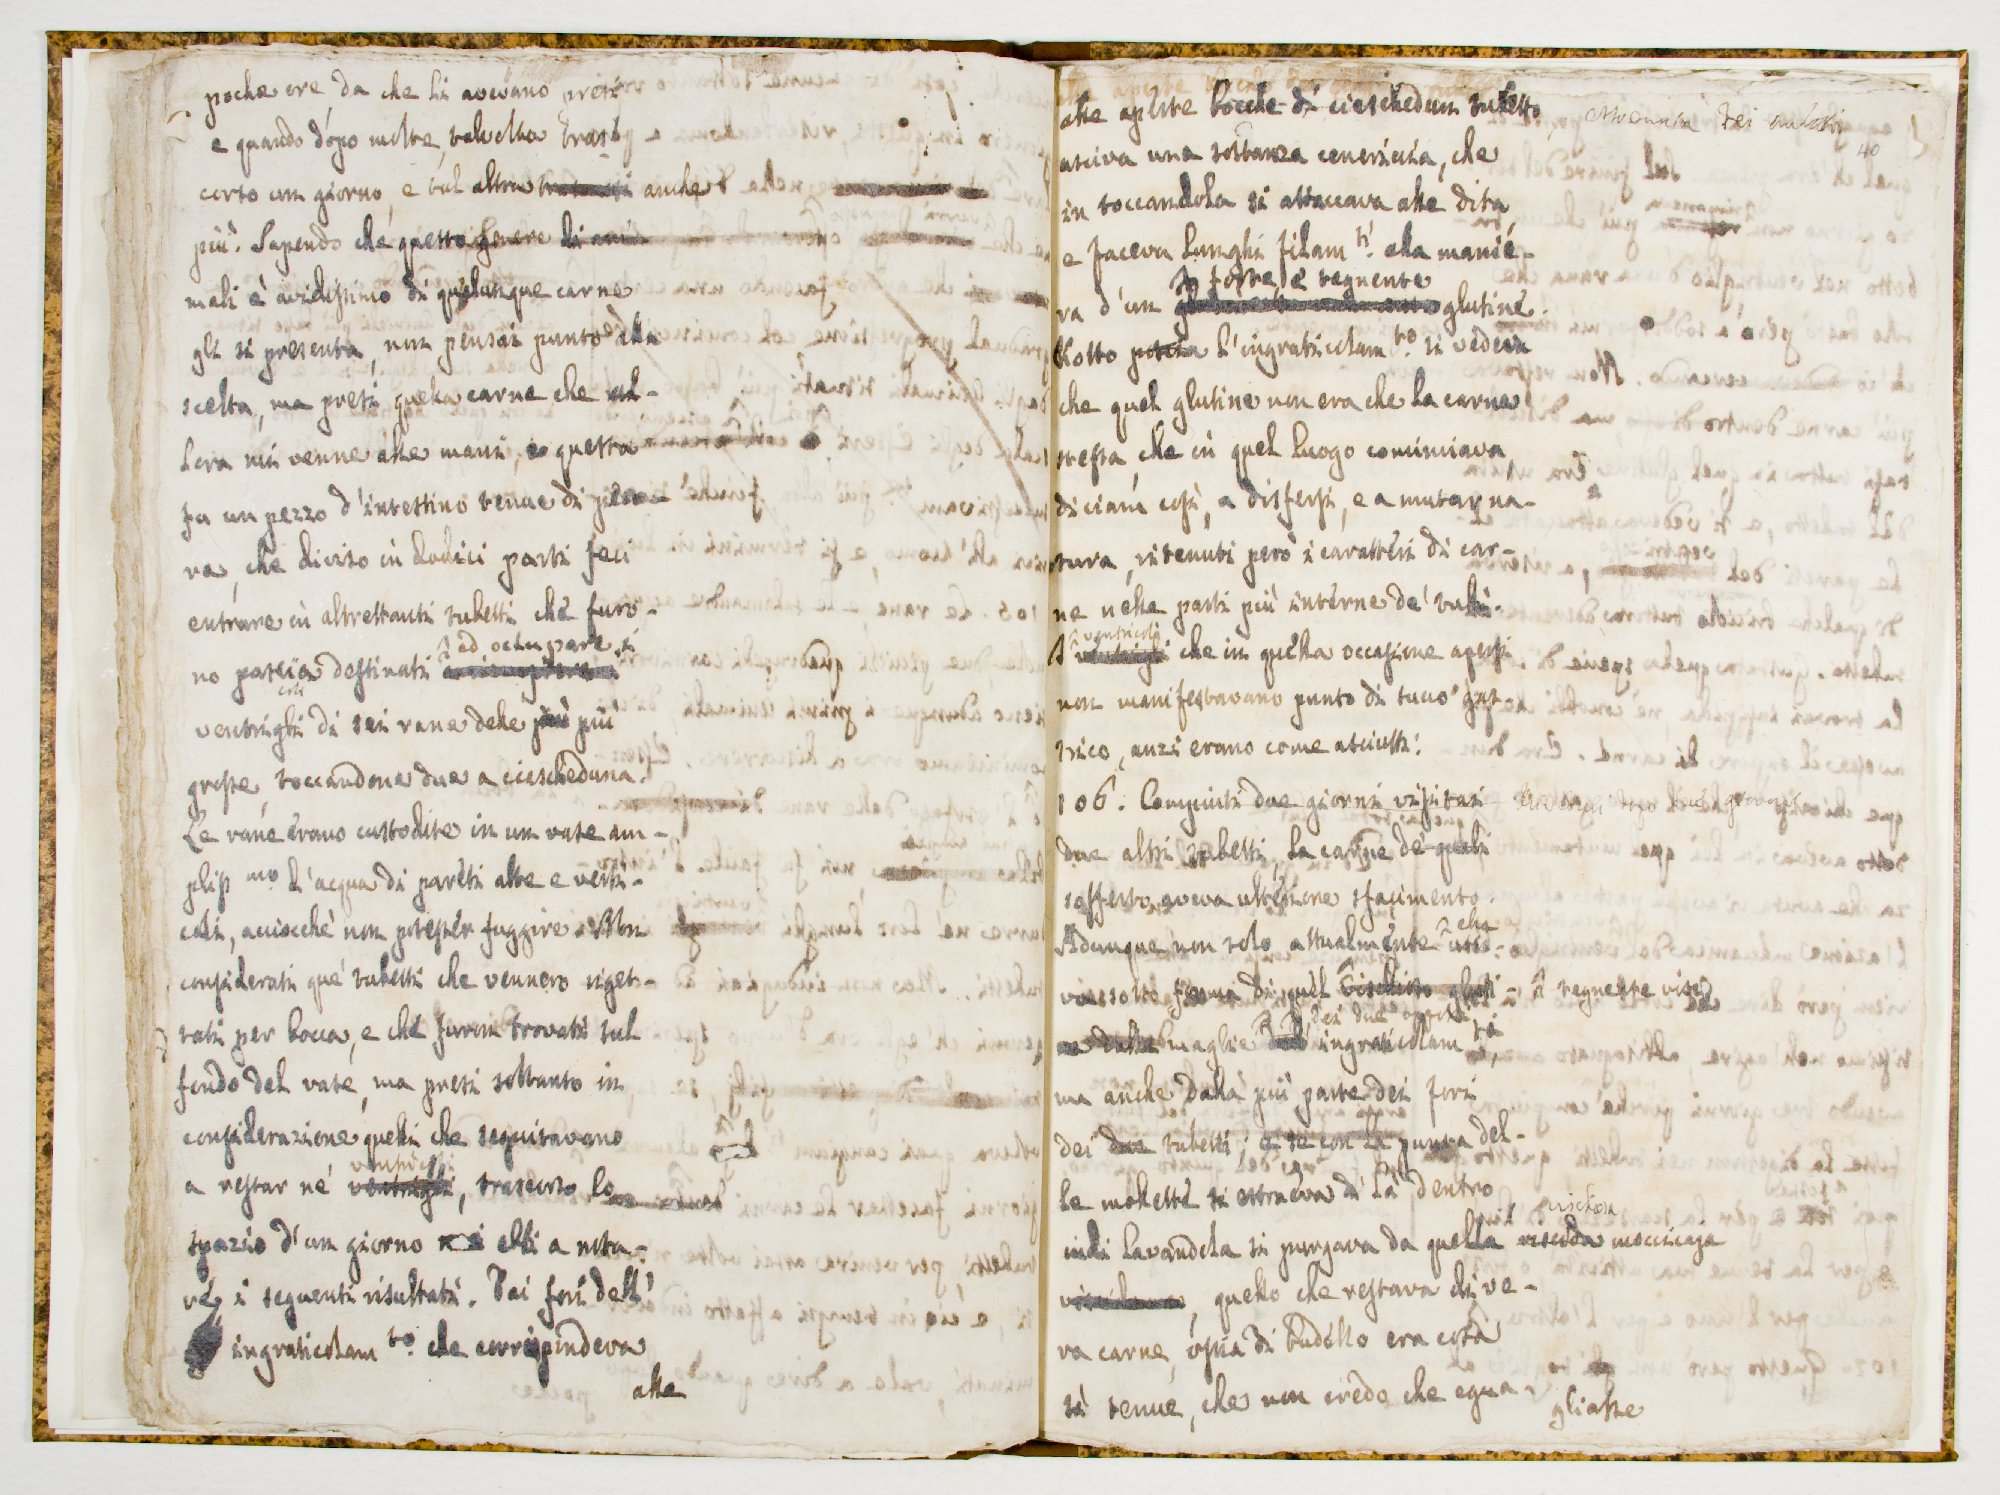 poche ore da che li avevano presi
e quando dopo molte, talvolta tras
corso un giorno, e tal altra anche
più. Sapendo che questo genere di ani-
mali è avidissimo di qualunque carne
gli si presenta, non pensai punto alla
scelta, ma presi quella carne che al-
lora mi venne alle mani, e questa
fu un pezzo d'intestino tenue di
va, che diviso in dodici parti feci
entrare in altrettanti tubetti che furo-
ad occupare i
no poscia destinati
ventrigli di sei rane delle più
grosse, toccandone due a ciascheduna.
Le rane erano custodite in un vase am-
pliss mo d'acqua di pareti alte e verti-
cali, acciocchè non potesser fuggire. Non
considerati que' tubetti che vennero riget-
tati per bocca, e che furon trovati sul
fondo del vase, ma presi soltanto in
considerazione quelli che seguitavano
ventricoli
a restar ne' ventrigli, trascorso lo
spazio d'un giorno ebbi a nota-
re i seguenti risultati. Dai fori dell'
ingraticolam to. che corrispondeva
alle
alle aperte bocche di ciaschedun tubetto
40
usciva una sostanza cenericcia, che
in toccandola si attaccava alle dita
e faceva lunghi filam ti. alla manie-
forte, e tegnente
ra d'un glutine.
Rotto poscia l'ingraticolam to. si vedeva
che quel glutine non era che la carne
stessa, che in quel luogo cominciava,
diciam così, a disfarsi, e a mutar na-
tura, ritenuti però i caratteri di car-
ne nelle parti più interne de' tubi.
ventricoli
I ventrigli che in quella occasione apersi
non manifestavano punto di succo gas-
trico, anzi erano come asciutti.
106. Compiuti due giorni visitai
due altri tubetti, la carne de' quali
sofferto aveva ulteriore sfacimento.
ella
Adunque non solo attualmente usci-
va sotto forma di quel gluti- tegnente
dei due opposti
ne dalle maglie ingraticolam ti,
ma anche dalla più parte dei fori
dei due tubetti; e se con la punta del-
le mollette si estraeva di là dentro
vischiosa
indi lavandola si purgava da quella viscida mocciccaja
, quello che restava di ve-
ra carne, ossia di budello era così
sì tenue, che non credo che egua-
gliasse